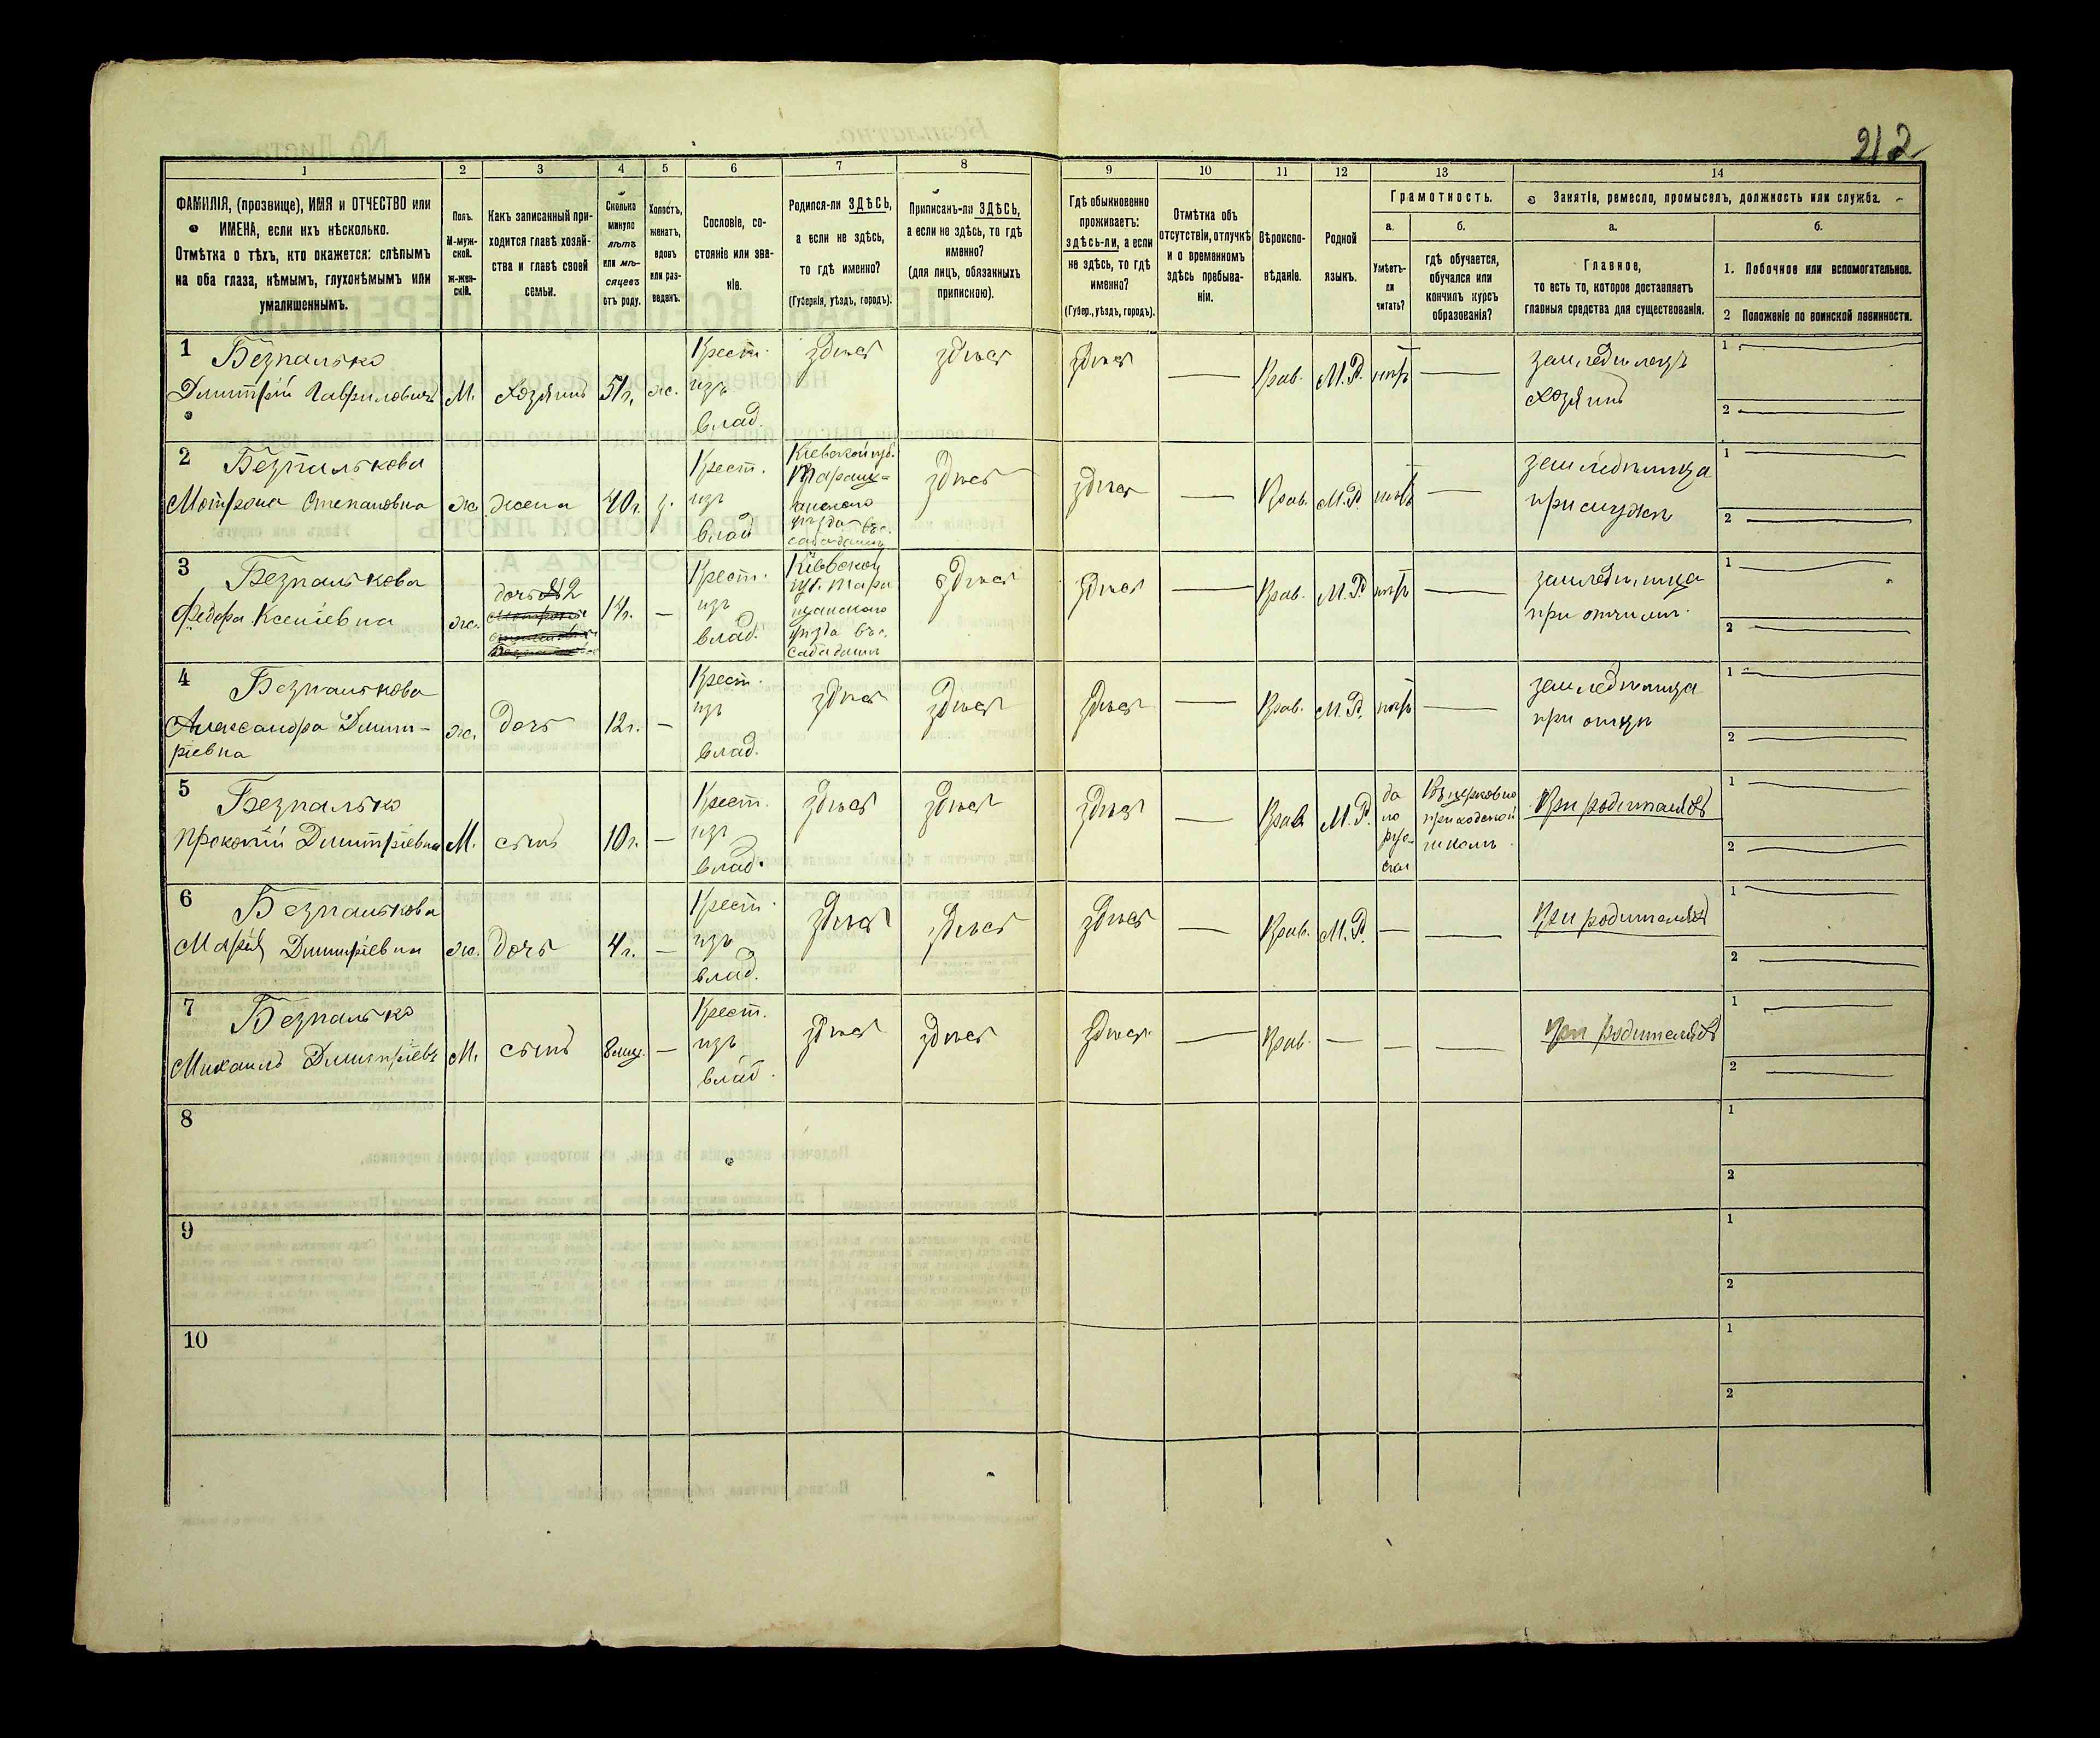 212
1
2
3
4
5
6
7
8
9
10
11
12
13
14
ФАМИЛІЯ, (прозвище), ИМЯ и ОТЧЕСТВО или
ИМЕНА, если ихъ нѣсколько.
Отмѣтка о тѣхъ, кто окажется: слѣпымъ
на оба глаза, нѣмымъ, глухонѣмымъ или
умалишеннымъ.
Полъ.
М-муж-
ской.
ж-жен-
скій.
Какъ записанный при-
ходится главѣ хозяй-
ства и главѣ своей
семьи.
Сколько
минуло
лѣтъ
или мѣ-
сяцевъ
отъ роду.
Холостъ,
женатъ,
вдовъ
или раз-
веденъ.
Сословіе, со-
стояніе или зва-
ніе.
Родился-ли ЗДѢСЬ,
а если не здѣсь,
то гдѣ именно?
(Губернія, уѣздъ, городъ).
Приписанъ-ли ЗДѢСЬ,
а если не здѣсь, то гдѣ
именно?
(для лицъ, обязанныхъ
припискою).
Гдѣ обыкновенно
проживаетъ:
здѣсь-ли, а если
не здѣсь, то гдѣ
именно?
(Губер., уѣздъ, городъ).
Отмѣтка объ
отсутствіи, отлучкѣ
и о временномъ
здѣсь пребыва-
ніи.
Вѣроиспо-
вѣданіе.
Родной
языкъ.
Грамотность.
а.
Умѣетъ-
ли
читать?
б.
гдѣ обучается,
обучался или
кончилъ курсъ
образованія?
Занятіе, ремесло, промыселъ, должность или служба.
а.
Главное,
то есть то, которое доставляетъ
главныя средства для существованія.
б.
1. Побочное или вспомогательное.
2 Положеніе по воинской повинности.
1 Безпалько
Дмитрій Гавриловичъ
М.
Хозяинъ
51г.
ж.
Крест.
изъ
влад.
здѣсь
здѣсь
здѣсь
Прав.
М.Р.
нѣтъ
земледѣлецъ
хозяинъ
1
2
2 Безпалькова
Мотрона Степановна
ж
жена
40г.
з.
Крест.
изъ
влад
Кіевской губ.
Таращ-
анского
уѣзда въ с.
здѣсь
здѣсь
Прав.
М.Р.
нѣтъ
земледѣлица
при мужѣ
1
2
3 Безпалькова
Федора Ксеніевна
ж.
дочь №2
14г.
Крест.
изъ
влад.
Кіевской
губ. Тара
щанского
уѣзда въ с.
здѣсь
здѣсь
Прав.
М.Р.
нѣтъ
земледѣлица
при отчимѣ
1
2
4 Безпалькова
Александра Дмит-
ріевна
ж.
дочь
12г.
Крест.
изъ
влад.
здѣсь
здѣсь
здѣсь
Прав.
М.Р.
нѣтъ
земледѣлица
при отцѣ
1
2
5 Безпалько
Прокопій Дмитріевич
М.
сынъ
10г.
Крест.
изъ
влад.
здѣсь
здѣсь
здѣсь
Прав
М.Р.
да
по
рус-
ски
Въ церковно
приходской
школѣ
При родителяхъ
1
2
6 Безпалькова
Марія Дмитріевна
ж.
дочь
4г.
Крест.
изъ
влад.
здѣсь
здѣсь
здѣсь
Прав.
М.Р.
При родителяхъ
1
2
7 Безпалько
Михаилъ Дмитріевъ
М.
сынъ
8 мѣс.
Крест.
изъ
влад.
здѣсь
здѣсь
здѣсь
Прав.
при родителяхъ
1
2
8
1
2
9
1
2
10
1
2